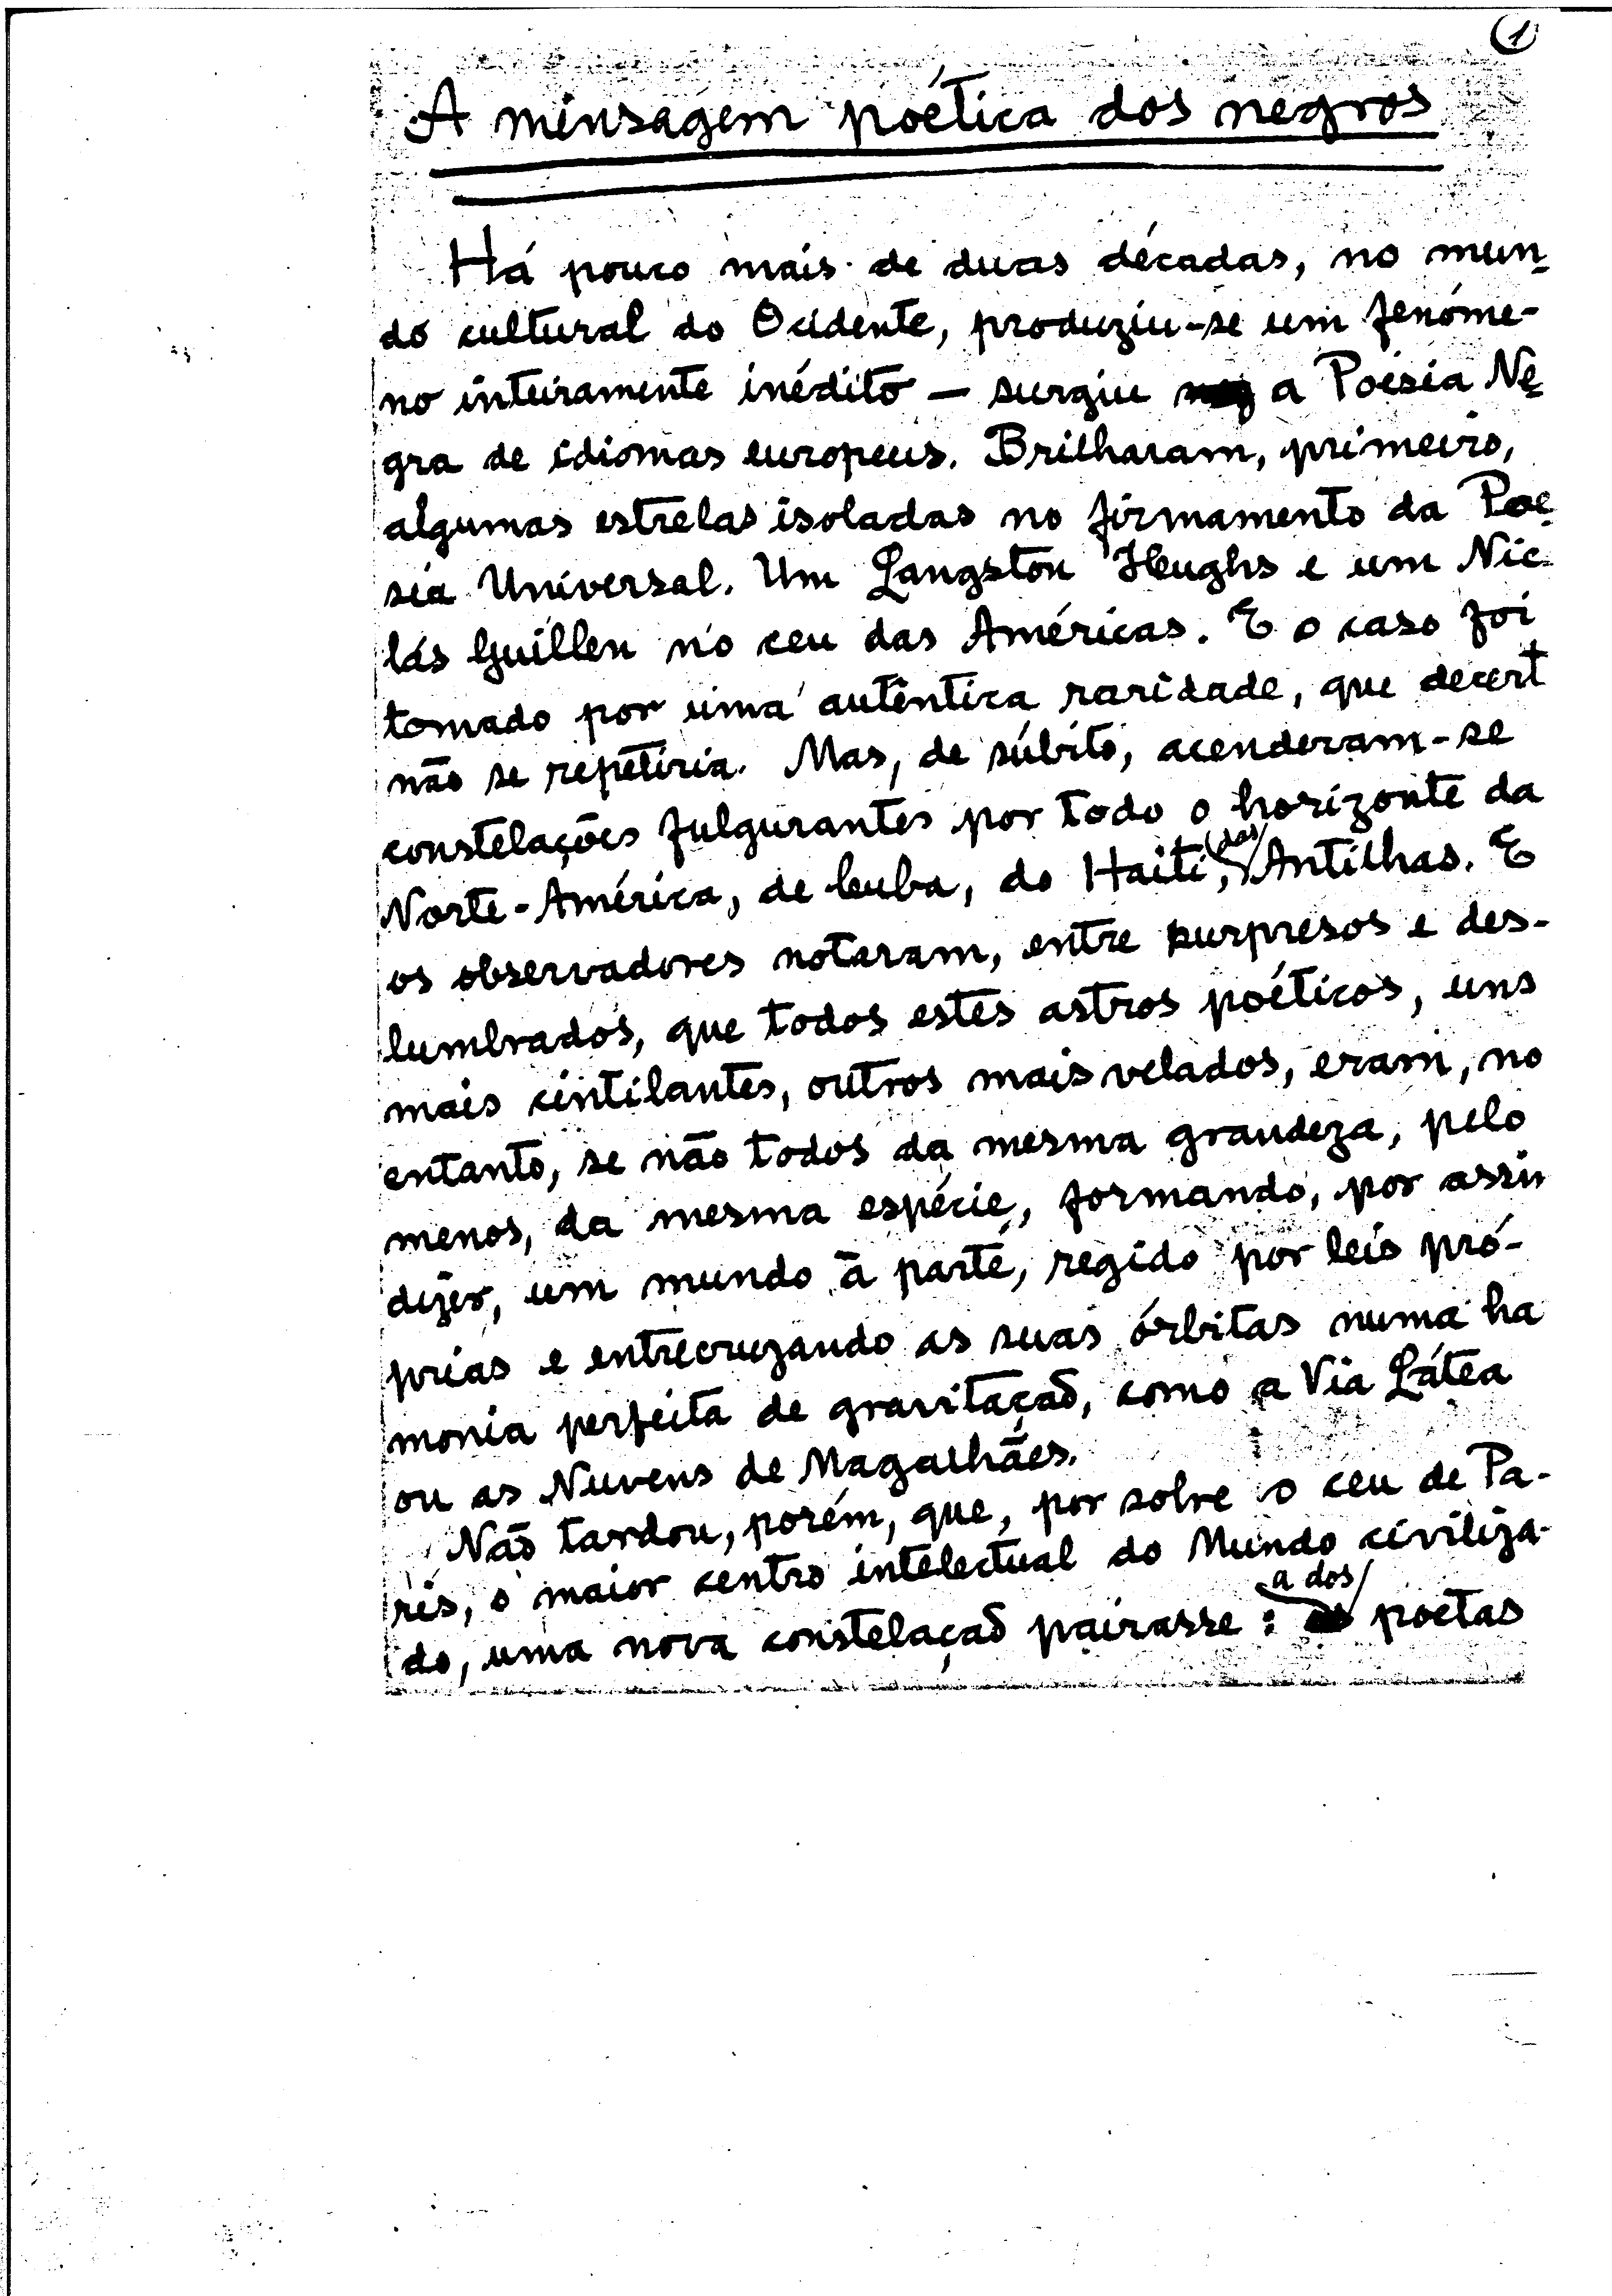 1
A mensagem poética dos negros
Há pouco mais de duas décadas, no mun-
do cultural do Ocidente, produziu-se um fenóme-
no inteiramente inédito — surgiu a Poesia Ne
gra de idiomas europeus. Brilharam, primeiro,
algumas estrelas isoladas no firmamento da Poe
sia Universal. Um Langston Heughs e um Nic
lás Guillen no ceu das Américas. E o caso foi
tomado por uma autêntica raridade, que decert
não se repetiria. Mas, de súbito, acenderam-se
constelações fulgurantes por todo o horizonte da
Norte-América, de Cuba, do Haiti, das Antilhas. E
os observadores notaram, entre surpresos e des-
lumbrados, que todos estes astros poéticos, uns
mais cintilantes, outros mais velados, eram, no
entanto, se não todos da mesma grandeza, pelo
menos, da mesma espécie, formando, por assim
dizer, um mundo à parte, regido por leis pró-
prias e entrecruzando as suas órbitas numa ha
monia perfeita de gravitação, como a Via Látea
ou as Nuvens de Magalhães.
Não tardou, porém, que, por sobre o ceu de Pa-
ris, o maior centro intelectual do Mundo civiliza-
do, uma nova constelação pairasse: a dos poetas